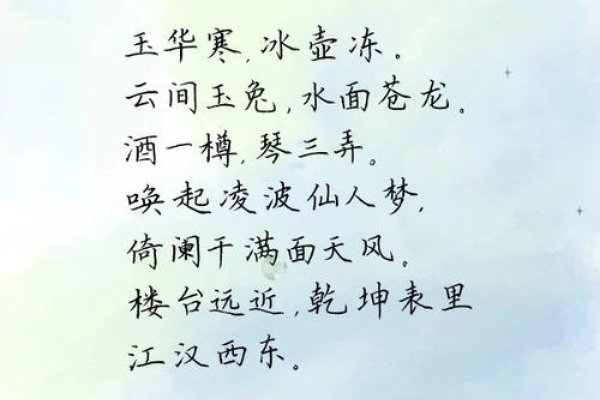 玉华寒,冰壶冻。
云间玉兔,水面苍龙。
酒一樽,琴三弄。
唤起凌波仙人梦,
倚阑干满面天风。
楼台远近,乾坤表里
江汉西东。